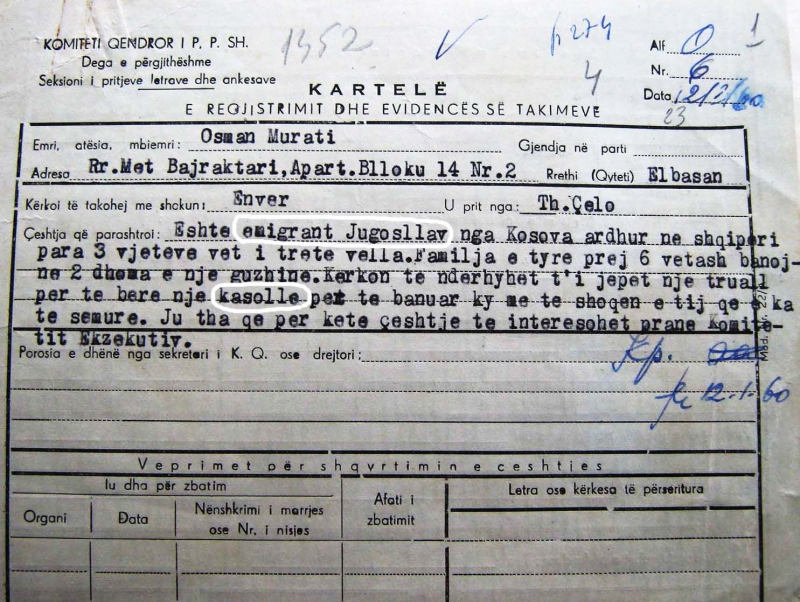 KOMITETI QENDROR I P. P. SH.
Dega e përgjithëshme
Seksioni i pritjeve letrave dhe ankesave
1352
fr 274
4
Alf O 1
Nr. 6
Data 12/1/60
23
KARTELË
E REGJISTRIMIT DHE EVIDENCËS SË TAKIMEVE
Emri, atësia, mbiemri: Osman Murati Gjendja në parti
Adresa Rr.Met Bajraktari,Apart.Blloku 14 Nr.2 Rrethi (Qyteti) Elbasan
Kërkoi të takohej me shokun: Enver U prit nga: Th.Çelo
Çeshtja që parashtroi: Eshte emigrant Jugosllav nga Kosova ardhur ne shqiperi
para 3 vjeteve vet i trete vella.Familja e tyre prej 6 vetash banoj-
ne 2 dhoma e nje guzhine.Kerkon te nderhyhet t'i jepet nje truall
per te bere nje kasolle per te banuar ky me te shoqen e tij qe e ka
te semure. Ju tha qe per kete çeshtje te interesohet prane Komite-
tit Ekzekutiv.
Porosia e dhënë nga sekretari i K. Q. ose drejtori:
Kp.
12-1-60
Veprimet për shqvrtimin e ceshtjes
Iu dha për zbatim
Afati i zbatimit
Letra ose kërkesa të përseritura
Organi
Data
Nënshkrimi i marrjes ose Nr. i nisjes